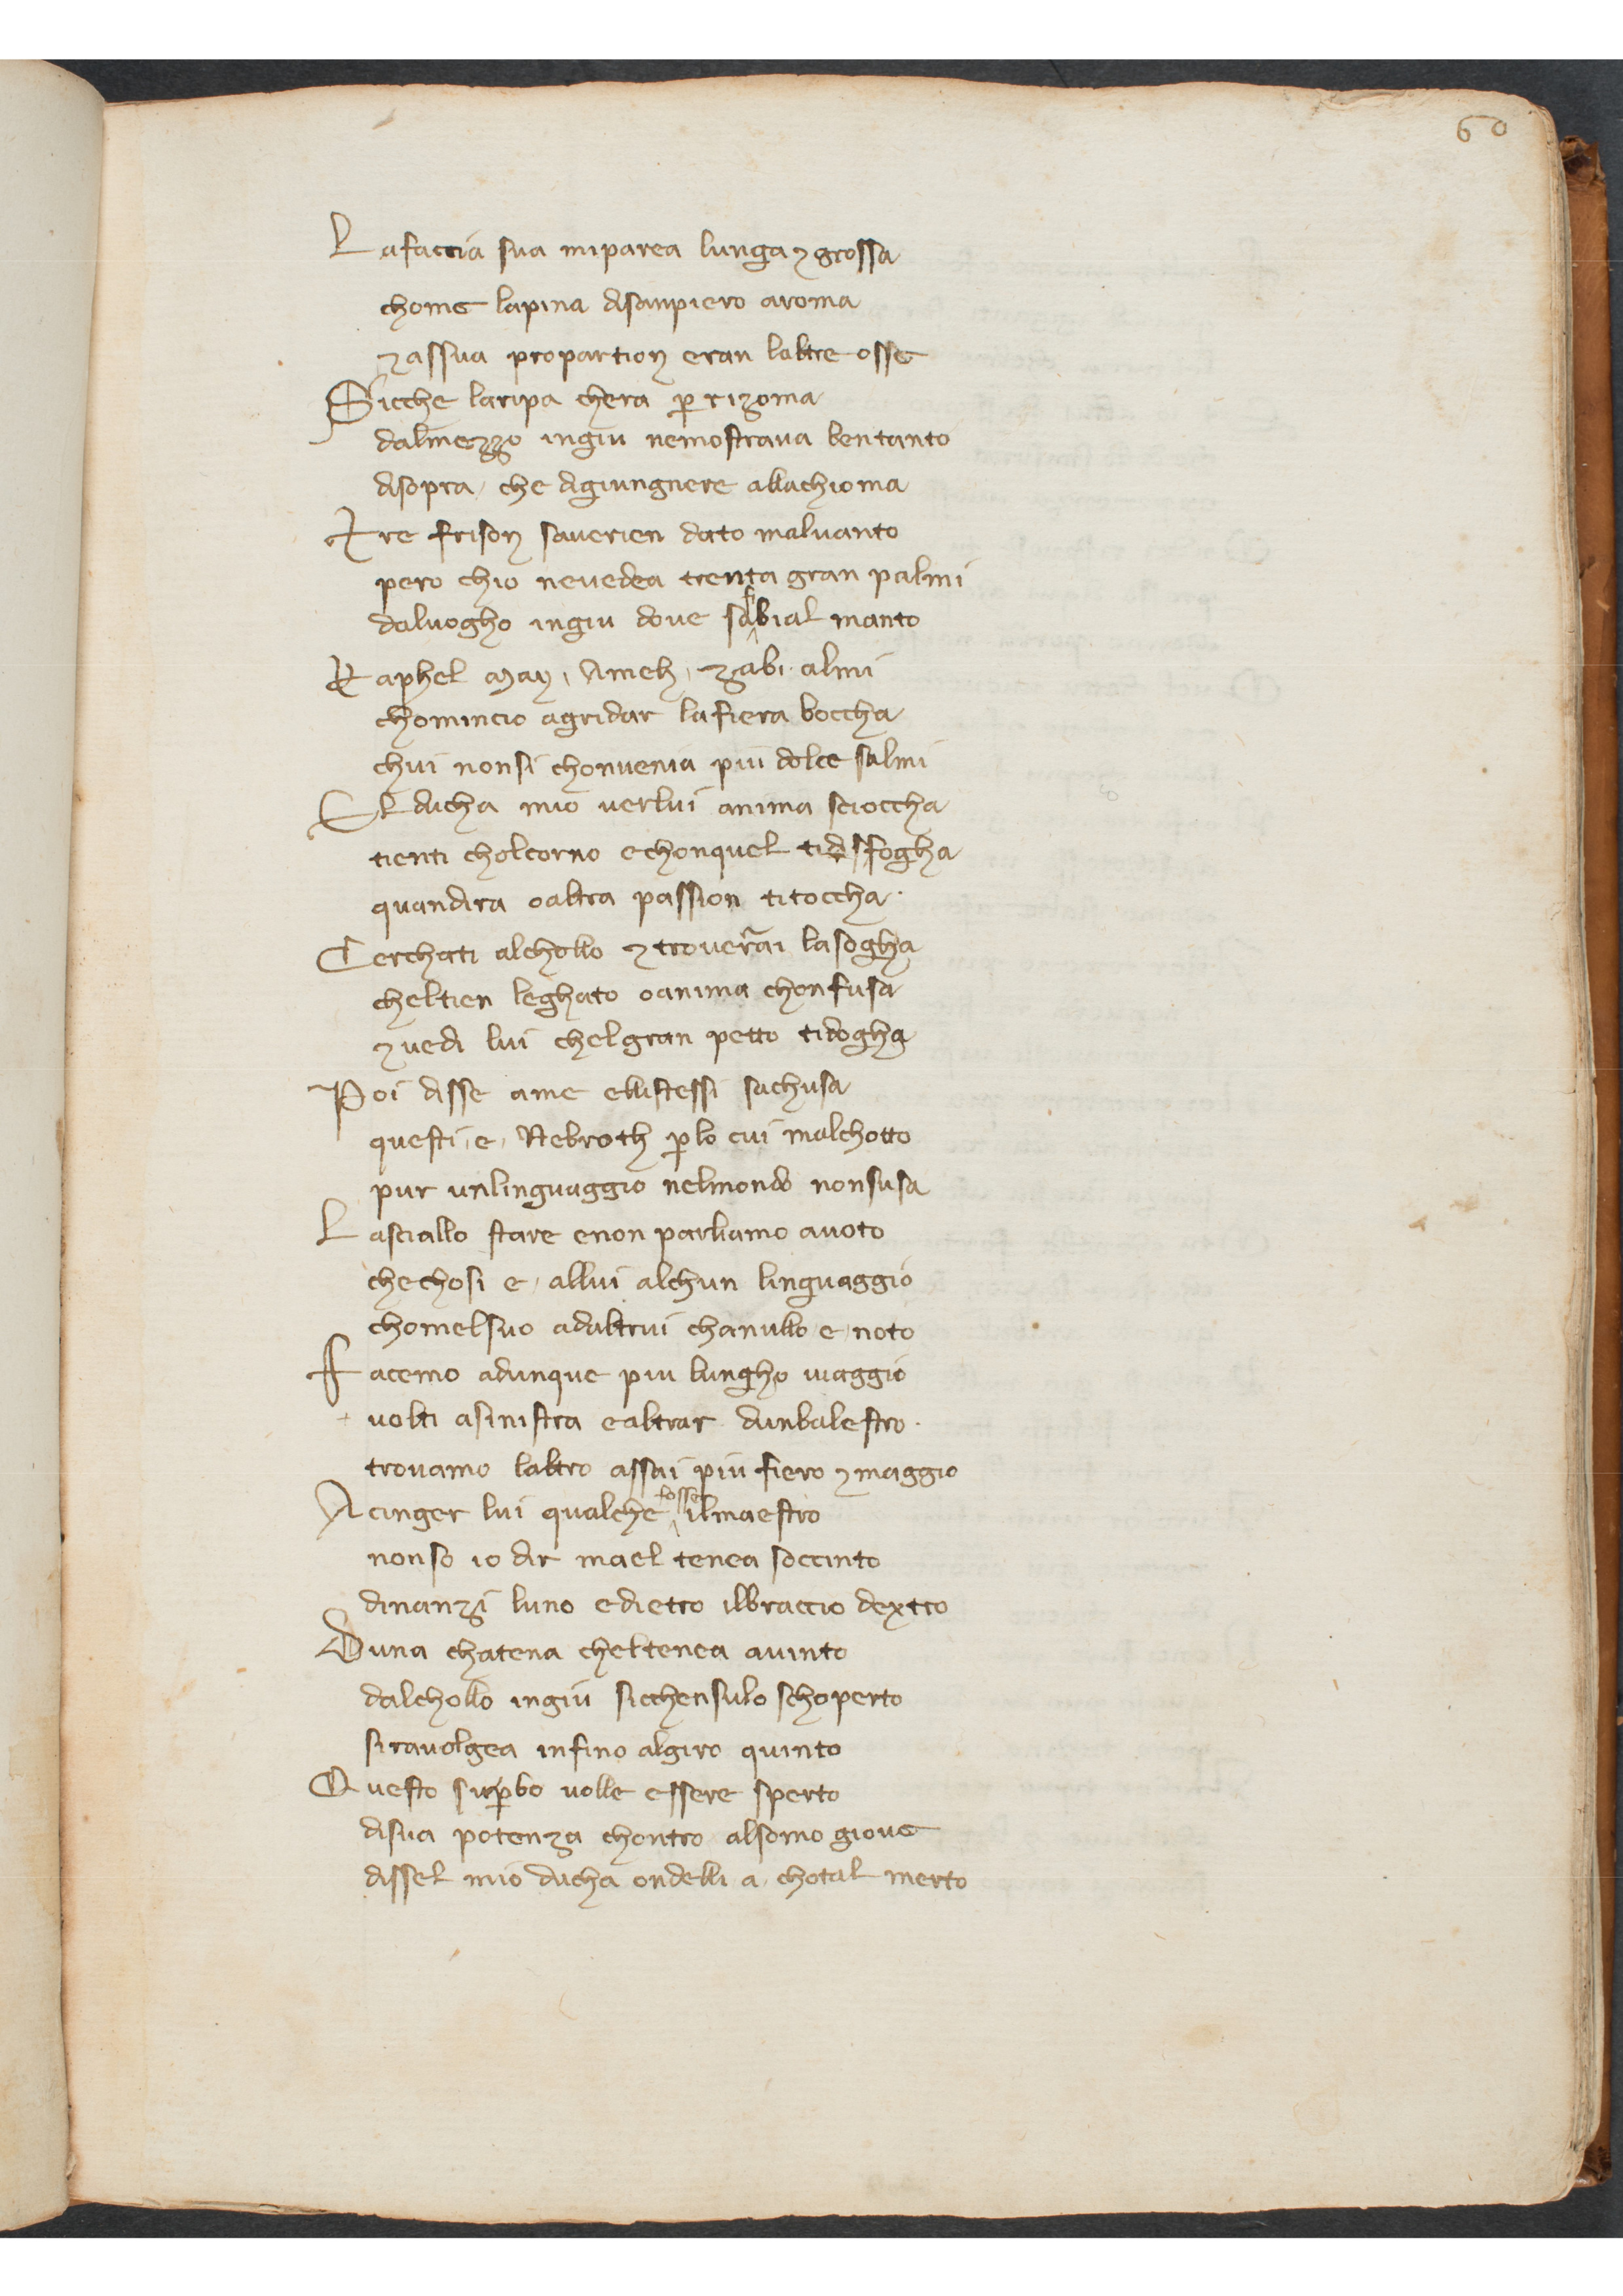 60
Lafaccia sua miparea lunga ⁊ grossa
chome lapina disanpiero aroma
⁊ assua propartion eran laltre osse
Sicche laripa chera ꝑ rizoma
dalmezzo ingiu nemostraua ben tanto
disopra che digiungnere allachioma
Tre frison sauerien dato maluanto
pero chio neuedea trenta gran palmi
daluogho ingiu doue safibial manto
Raphel may, Ameh, zabi almi
chomincio agridar lafiera boccha
chui nonsi chonuenia piu dolce salmi
El ducha mio uerlui anima scioccha
tienti cholcorno echonquel tidisfogha
quandira oaltra passion titoccha
Cerchati alchollo ⁊ trouerrai lasogha
cheltien leghato oanima chonfusa
⁊ uedi lui chelgran petto tidogha
Poi disse ame ellistessi sachusa
questi e, Nebroth ꝑlo cui malchotto
pur unlinguaggio nelmondo nonsusa
Lasciallo stare enon parliamo auoto
chechosi e, allui alchun linguaggio
chomelsuo adaltrui chanullo e noto
Facemo adunque piu lungho uiaggio
uolti asinistra ealtrar dunbalestro
trouamo laltro assai piu fiero ⁊ maggio
Acinger lui qualche fosse ilmaestro
nonso io dir mael tenea soccinto
dinanzi luno edietro ilbraccio dextro
Duna chatena cheltenea auinto
dalchollo ingiu sicchensulo schoperto
sirauolgea infino algiro quinto
Questo suꝑbo uolle essere sperto
disua potenza chontro alsomo gioue
dissel mio ducha ondelli a chotal merto